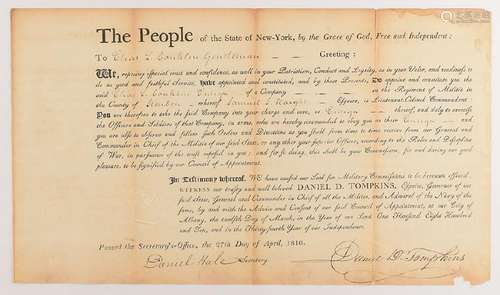 The People of the State of New-York, by the Grace of God, Free and Independent:
To Elias L Conklin Gentleman Greeting:
We, reposing special trust and confidence, as well in your Patriotism, Conduct and Loyalty, as in your Valor, and readiness to
do us good and faithful Service, have appointed and constituted, and by these Presents, Do appoint and constitute you the
said Elias L Conklin Ensign of a Company in the Regiment of Militia in
the County of whereof Samuel Esquire, is Lieutenant-Colonel Commandant
You are therefore to take the said Company into your charge and care, as Ensign thereof, and duly to exercise
the Officers and Soldiers of that Company, in arms, who are hereby commanded to obey you as their Ensign and
you are also to observe and follow such Orders and Directions as you shall from time to time receive from our General and
Commander in Chief of the Militia of our said State, or any other your Superior Officer, according to the Rules and Discipline
of War, in pursuance of the trust reposed in you; and for so doing, this shall be your Commission, for and during our good
pleasure, to be signified by our Council of Appointment.
In Testimony whereof, We have caused our Seal for Military Commissions to be hereunto affixed.
WITNESS our trusty and well beloved DANIEL D. TOMPKINS, Esquire, Governor of our
said State, General and Commander in Chief of all the Militia, and Admiral of the Navy of the
same, by and with the Advice and Consent of our said Council of Appointment, at our City of
Albany, the twelfth Day of March, in the Year of our Lord One Thousand Eight Hundred
and Ten, and in the Thirty-fourth Year of our Independence.
Passed the Secretary's-Office, the 27th Day of April, 1810.
Daniel Hale Secretary
Daniel D. Tompkins